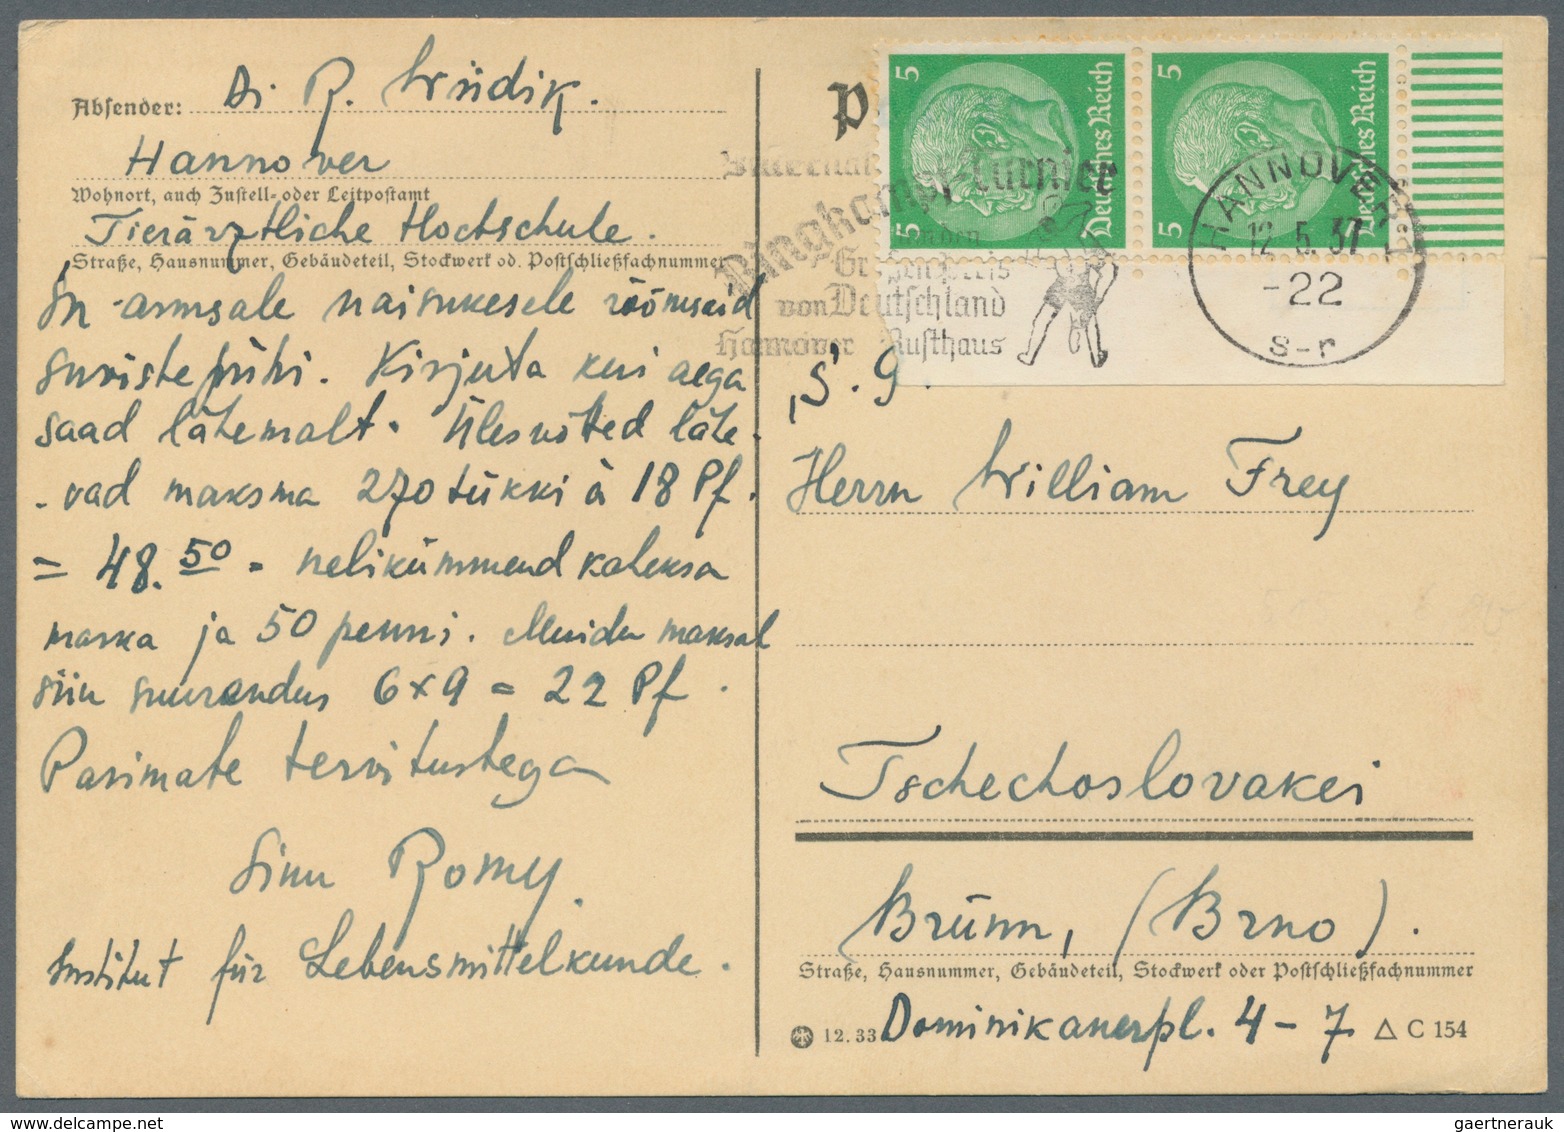 Absender: Di R. Wiidik.
Hannover
Wohnort, auch Zustell- oder Leitpostamt
Tierärztliche Hochschule.
Straße, Hausnummer, Gebäudeteil, Stockwerk od. Postschließfachnummer
armsale naisukesele rõõmsaid
suvistepühi. Kirjuta kui aega
saad lähemalt. Ülesvõtted lähe-
-vad maksma 270 tükki à 18 Pf.
= 48.50 = nelikümmend kaheksa
marka ja 50 penni. Muidu maksab
siin suurendus 6x9 = 22 Pf.
Parimate tervitustega
Sinu Romy.
Institut für Lebensmittelkunde.
P
5 Deutsches Reich
5 Deutsches Reich
Internat
Ringkampf-Turnier
um den
Großen Preis
von Deutschland
Hannover Kusthaus
HANNOVER
12.5.37
-22
s-r
S. g.
Herrn William Frey
Tschechoslovakei
Brünn, (Brno).
Straße, Hausnummer, Gebäudeteil, Stockwerk oder Postschließfachnummer
12.33 Dominikanerpl. 4-7 Δ C 154
gaertnerauk